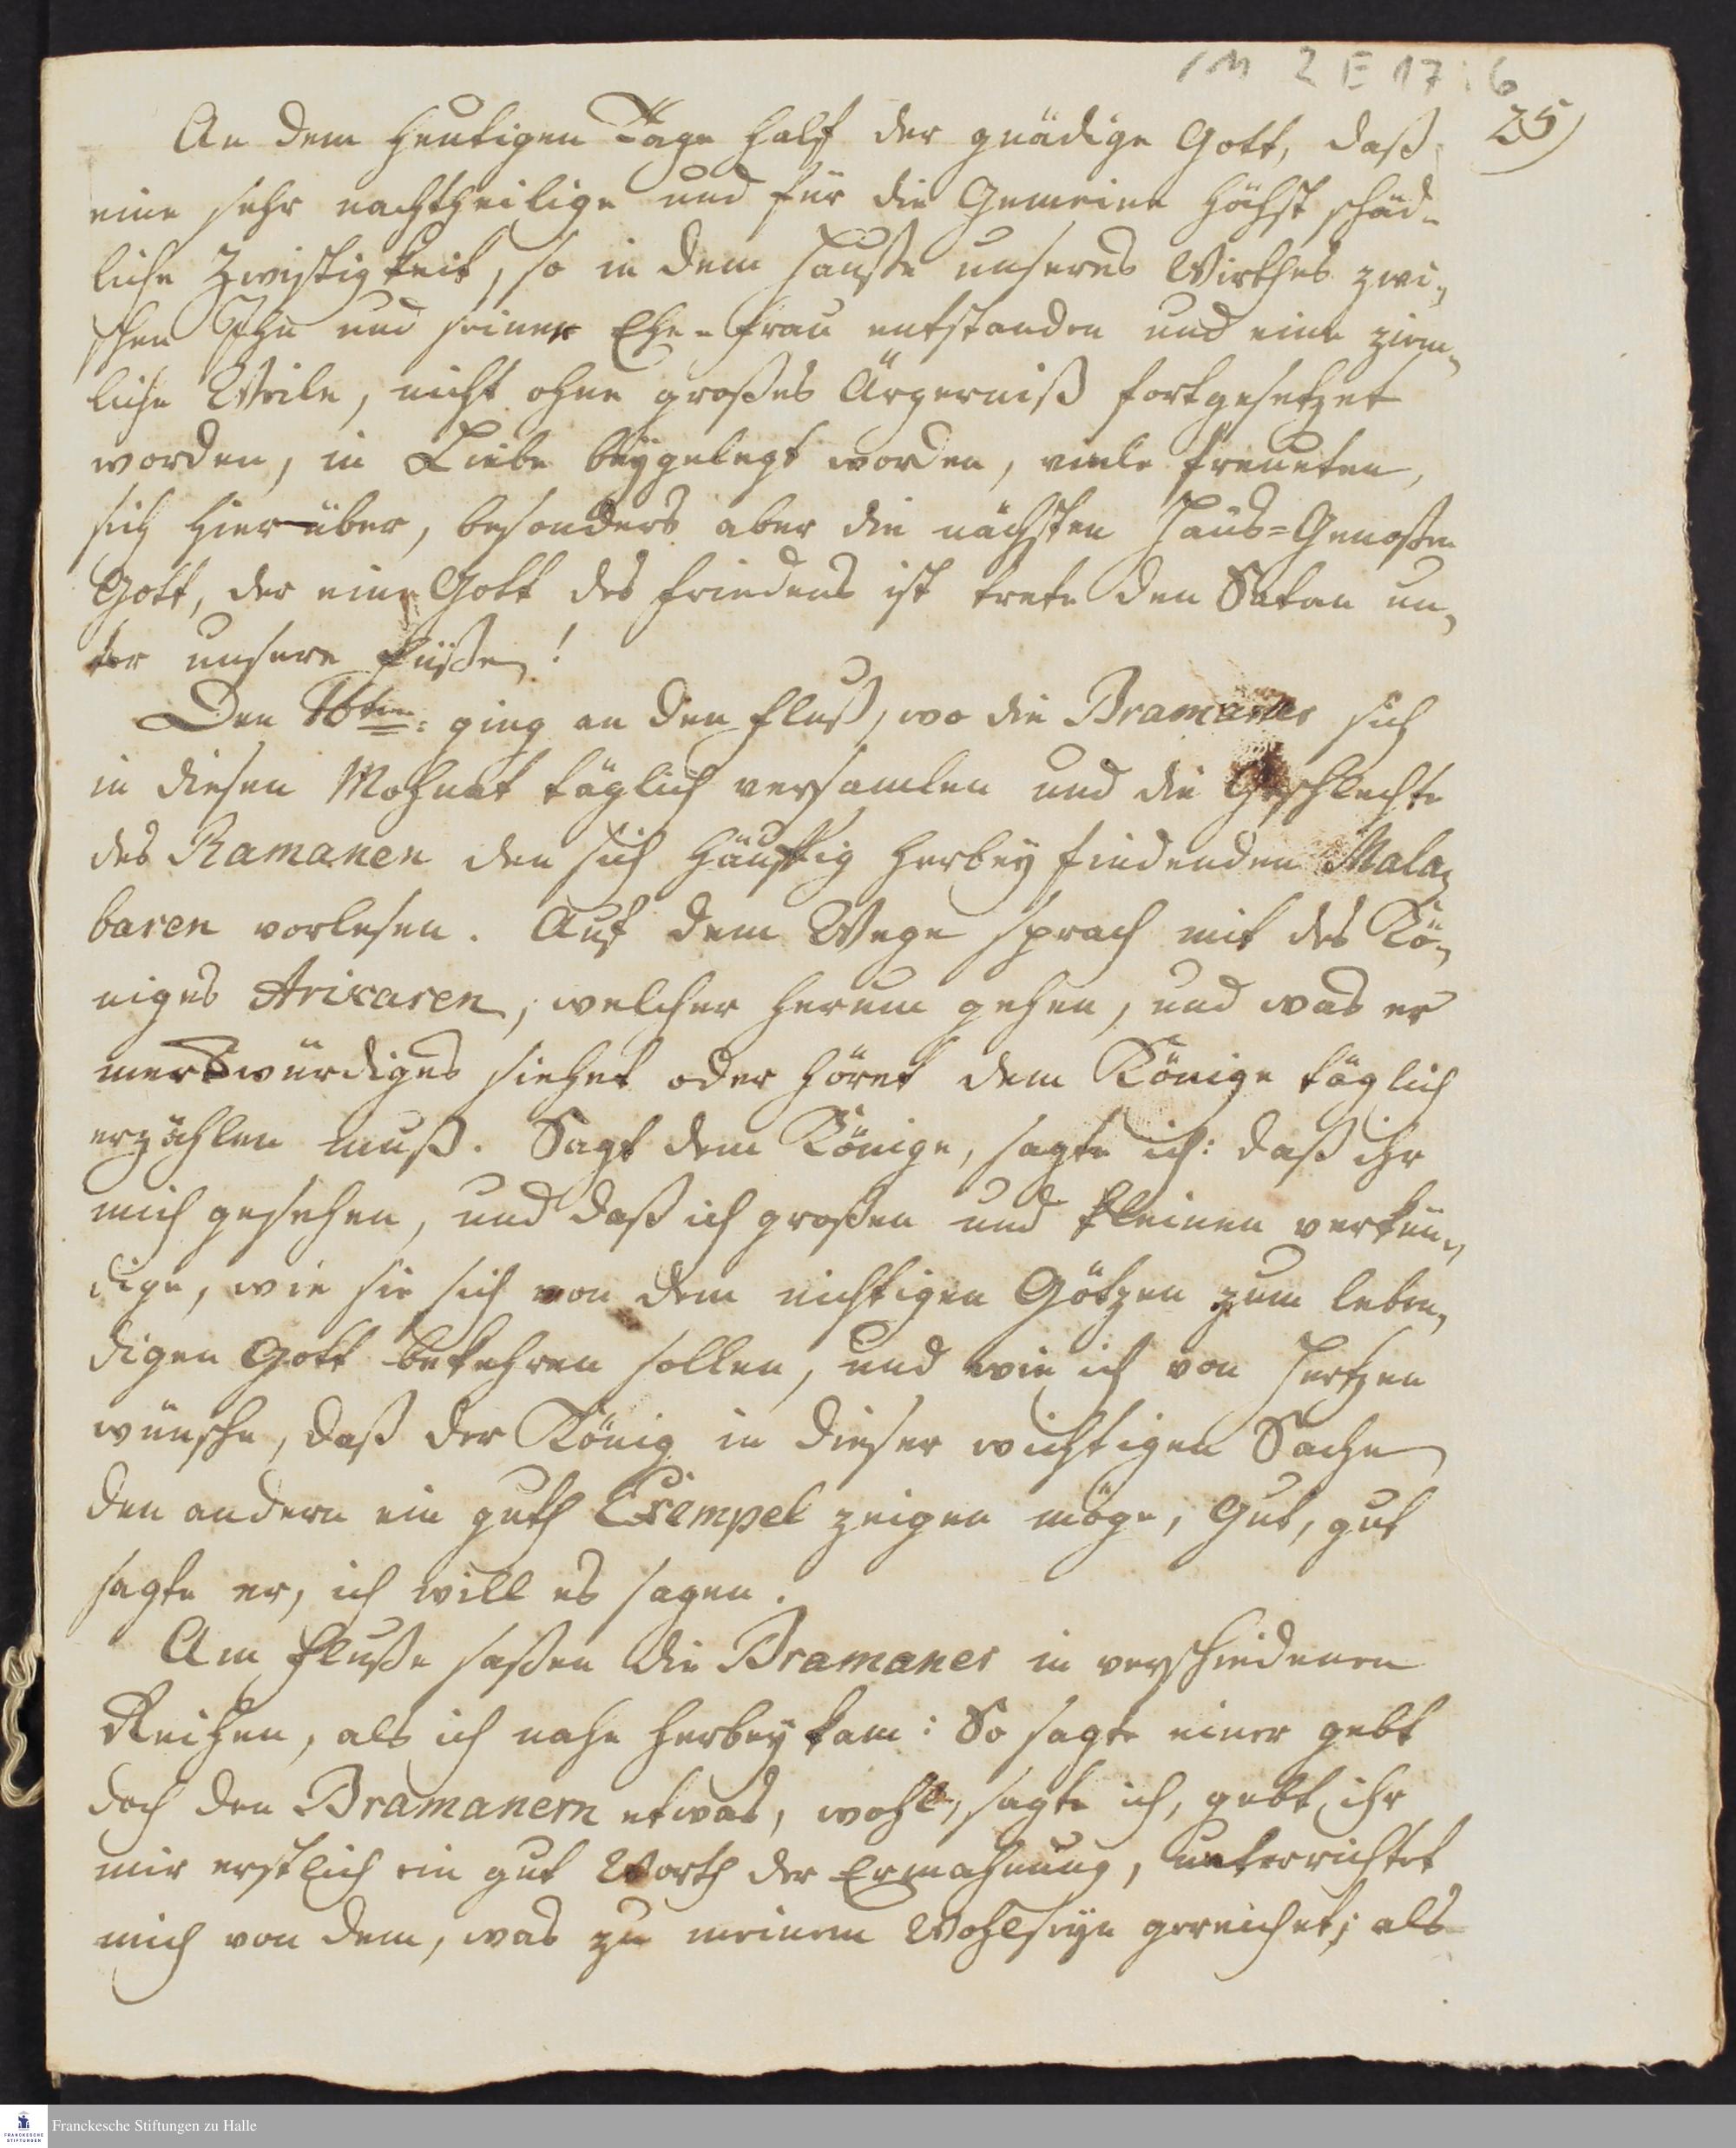 1M 2 E 17 : 6
25)
An dem heutigen Tage half der gnädige Gott, daß
eine sehr nachtheilige und für die Gemeine höchst schäd-
liche Zwistigkeit, so in dem Hauße unseres Wirthes zwi-
schen Ihn und seiner Ehe-Frau entstanden und eine ziem-
liche Weile, nicht ohne großes Ärgerniß fortgesetzet
worden, in Liebe beygelegt worden, viele freueten,
sich hierüber, besonders aber die nächsten Haus-Genoßen
Gott, der eine Gott des Friedens ist trete den Satan un-
ter unsere Füße!
Den 16ten: ging an den Fluß, wo die Bramaner sich
in diesen Mohnat täglich versamlen und die Geschlechte
des Ramanen den sich häuffig herbey findenden Mala-
baren vorlesen. Auf dem Wege sprach mit des Kö-
niges Arixaren, welcher herum gehen, und was er
merckwürdiges siehet oder höret dem Könige täglich
erzöhlen muß. Sagt dem Könige, sagte ich: daß ihr
mich gesehen, und daß ich großen und kleinen verkün-
dige, wie sie sich von dem nichtigen Götzen zum leben-
digen Gott bekehren sollen, und wie ich von Hertzen
wünsche, daß der König in dieser wichtigen Sache
den andern ein guth Exempel zeigen möge, Gut, gut
sagte er, ich will es sagen.
Am Fluße saßen die Bramaner in verschiedenen
Reihen, als ich nahe herbey kam: So sagte einer gebt
doch den Bramanern etwas, wohl, sagte ich, gebt ihr
mir erstlich ein gut Worth der Ermahnung, unterrichtet
mich von dem, was zu meinem Wohlseyn gereichet; als
Franckesche Stiftungen zu Halle
FRANCKESCHE
STIFTUNGEN